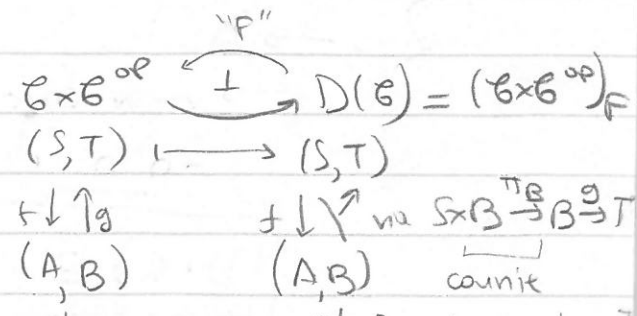 "F"
𝒞×𝒞^op ⊥ D(𝒞) = (𝒞×𝒞^op)_F
(S,T) ⟼ (S,T)
f↓↑g f↓ via S×B →^{π_B} B →^g T
(A,B) (A,B) counit